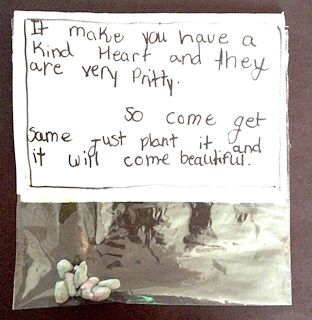 It make you have a
Kind Heart and they
are very Pritty.
So come get
same Just plant it and
it will come beautiful.